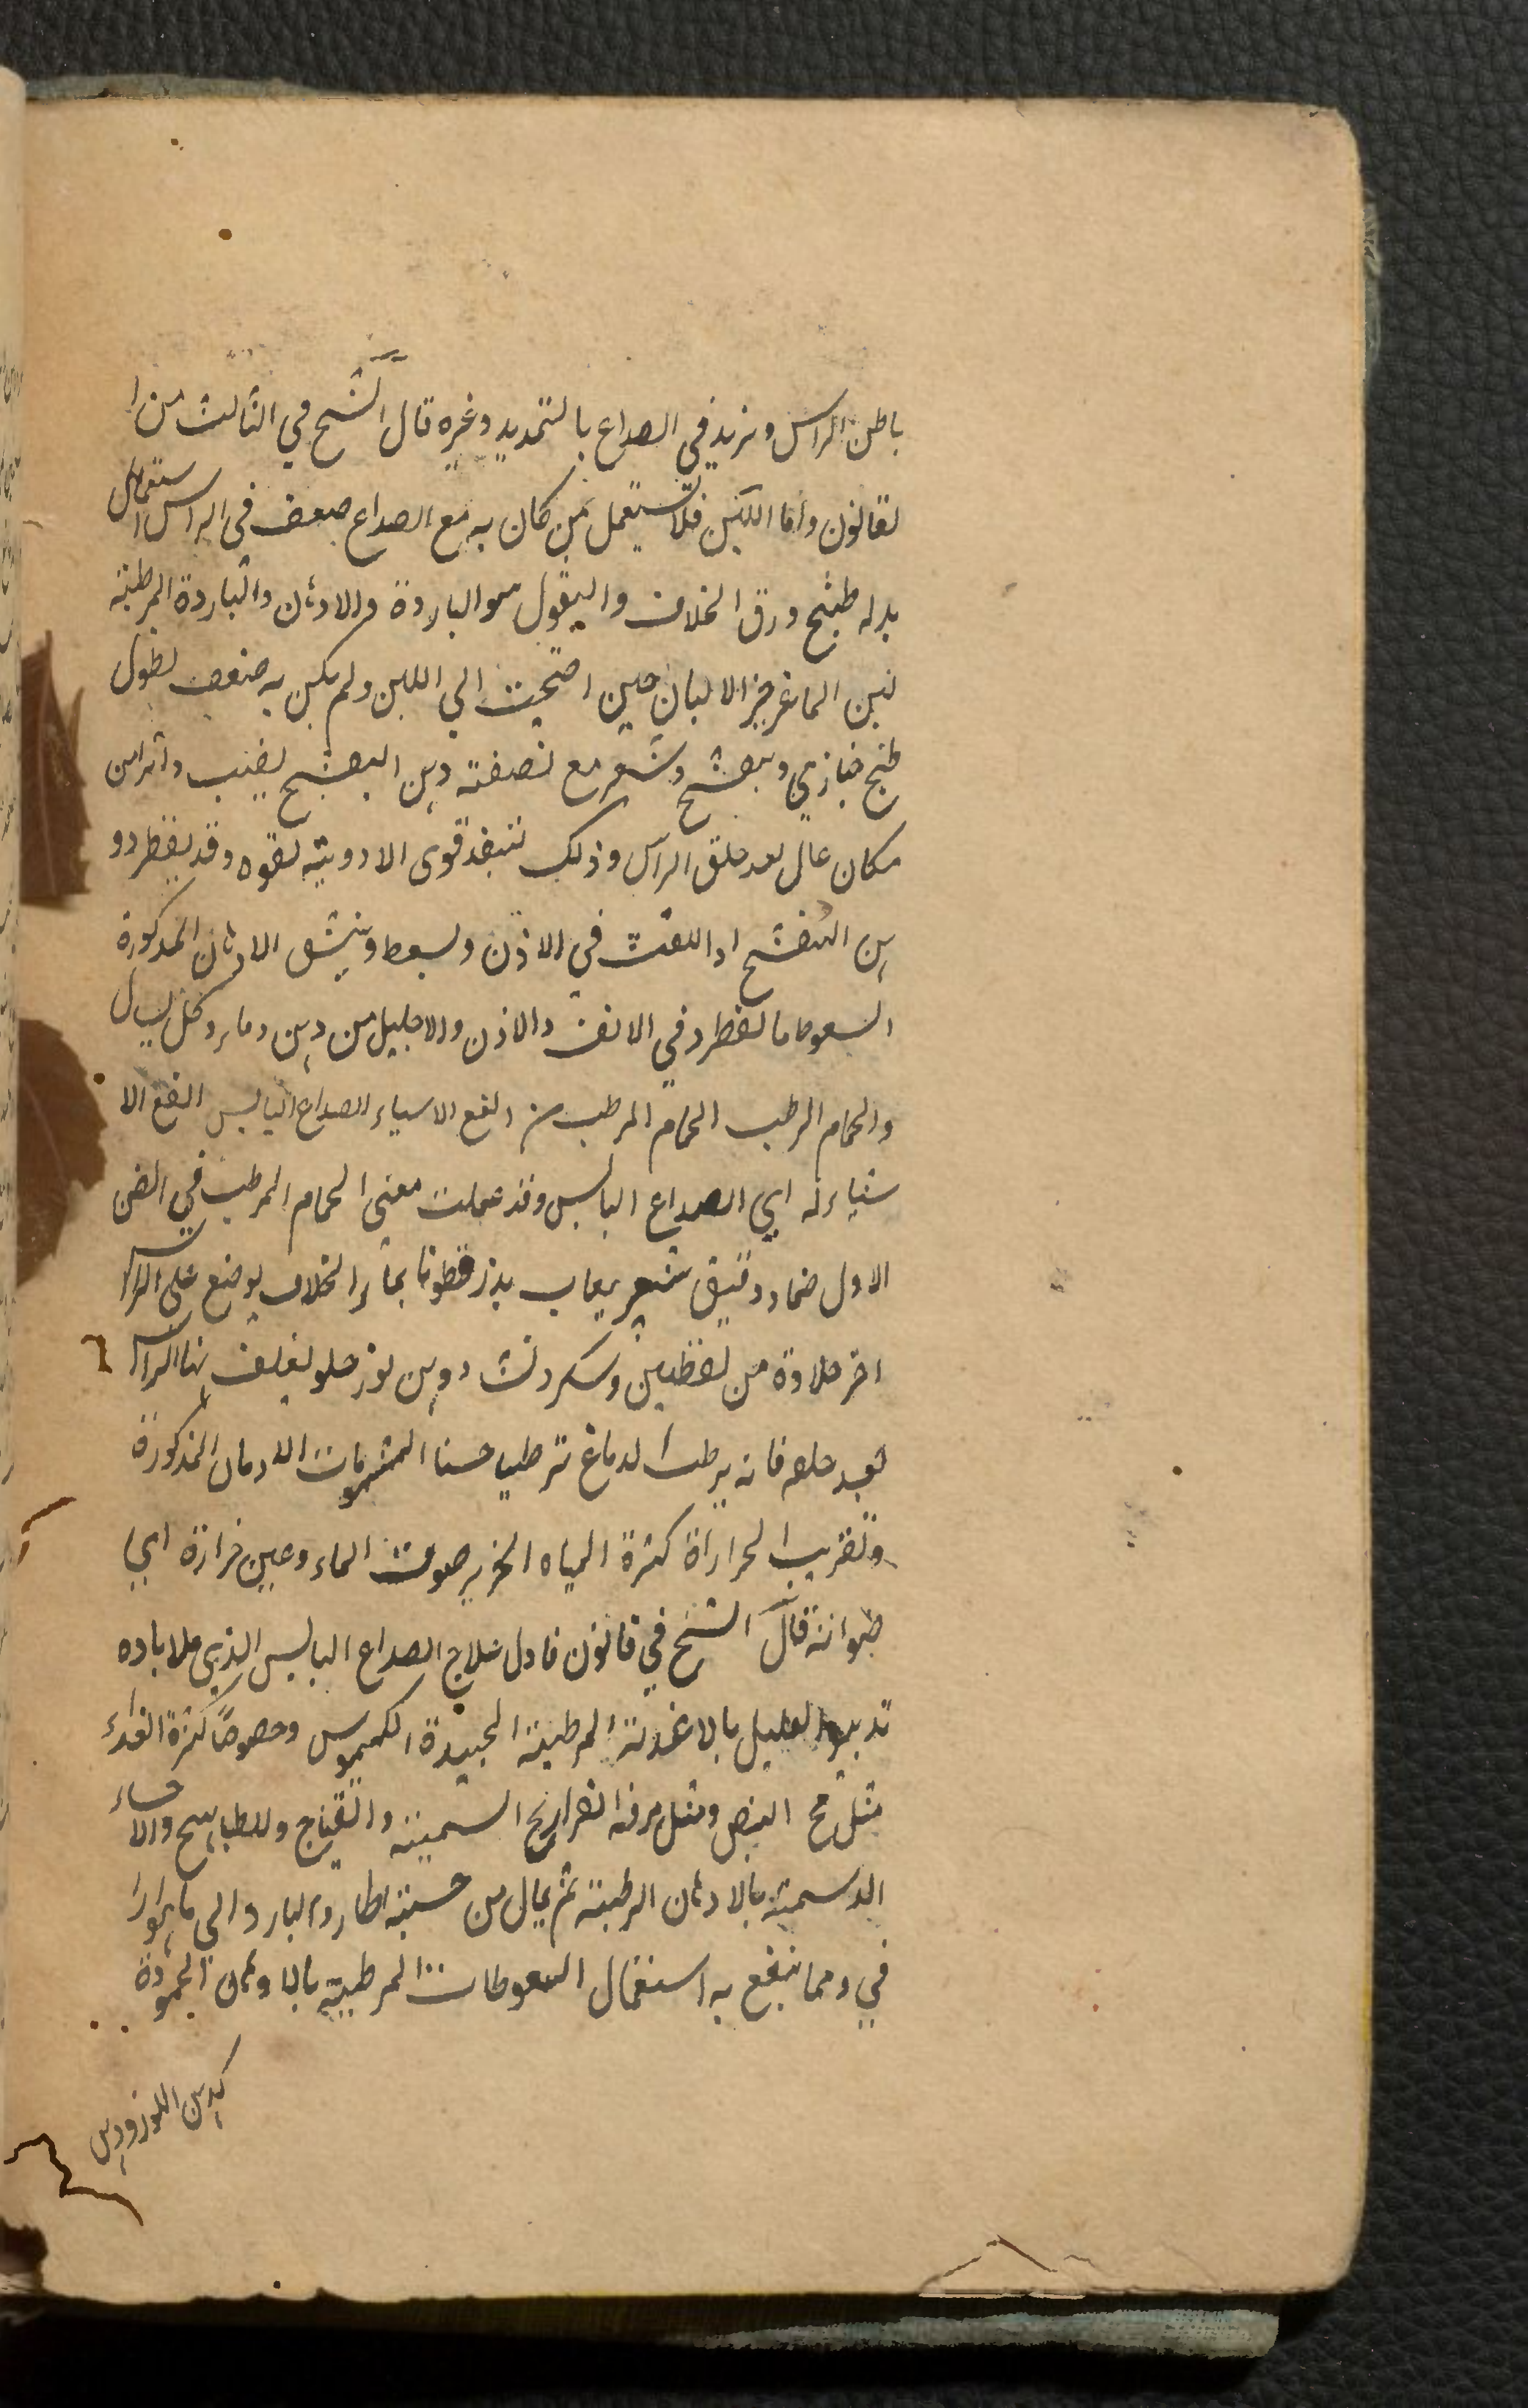 باطن الراس ونزيد في الصداع بالتمديد وغيره قال الشيخ في الثالث من ا
لقانون وأما اللبن فلا يستعمل من كان به مع الصداع ضعف في الراس استعمال
بدله طبيخ ورق الخلاف والبقول هو الباردة والادهان والباردة المرطبة
لبن الماعز خير الالبان حين احتجت الي اللبن ولم يكن به ضعف نطول
طبخ خبازي وبنفشج وشعير مع نصفته دهن البنفشج يضيب واثرا من
مكان عال بعد حلق الراس وذلك لتنفذ قوى الادوية بقوه وقد يقطر دو
هن البنفشج اذا اللقث في الاذن ويسعط وينشق الادهان المذكورة
السعوط ما يقطر د في الانف والاذن والاحليل من دهن وما برد كل يسال
والحمام الرطب الحمام المرطب من انفع الاسياء الصداع اليابس انفع الا
شياء له اي الصداع اليابس وقد عملت معنى الحمام المرطب في الفن
الاول ضماد دقيق شعير بلعاب بذر قطونا بماء الخلاف يوضع على الراس
اخر حلاوة من لقطين وسكر ونشا دوهن لوز حلو يغلف بها الراس
بعد حلقه فانه يرطب الدماغ ترطيبا حسنا المشمومات الادهان المذكورة
وتقريب الحرارة كثرة المياه الخرير صوت الماء وعين خرارة اي
طبوانة قال الشيخ في قانون فاول علاج الصداع اليابس الذي ملا باده
تدبير العليل بالاغذية المرطبة الجيدة الكيموس وخصوصا كثرة الغذاء
مثل مح البيض ومثل مرقه الفراريج السمينه والقباج وللطياهيج والاحساء
الدسمة بالادهان الرطبة ثم يمال من حسنة اطار والبارد الى ما يوارا
في ومما ينفع به استعمال السعوطات المرطبة بالادهان المحمودة
كدهن اللوز ودهن